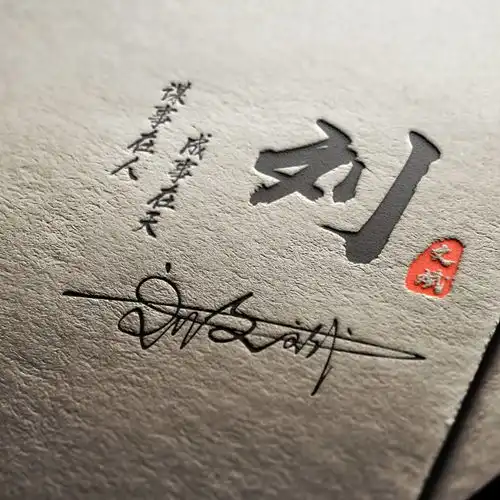 谋事在人
成事在天
刘
文斌
刘文斌